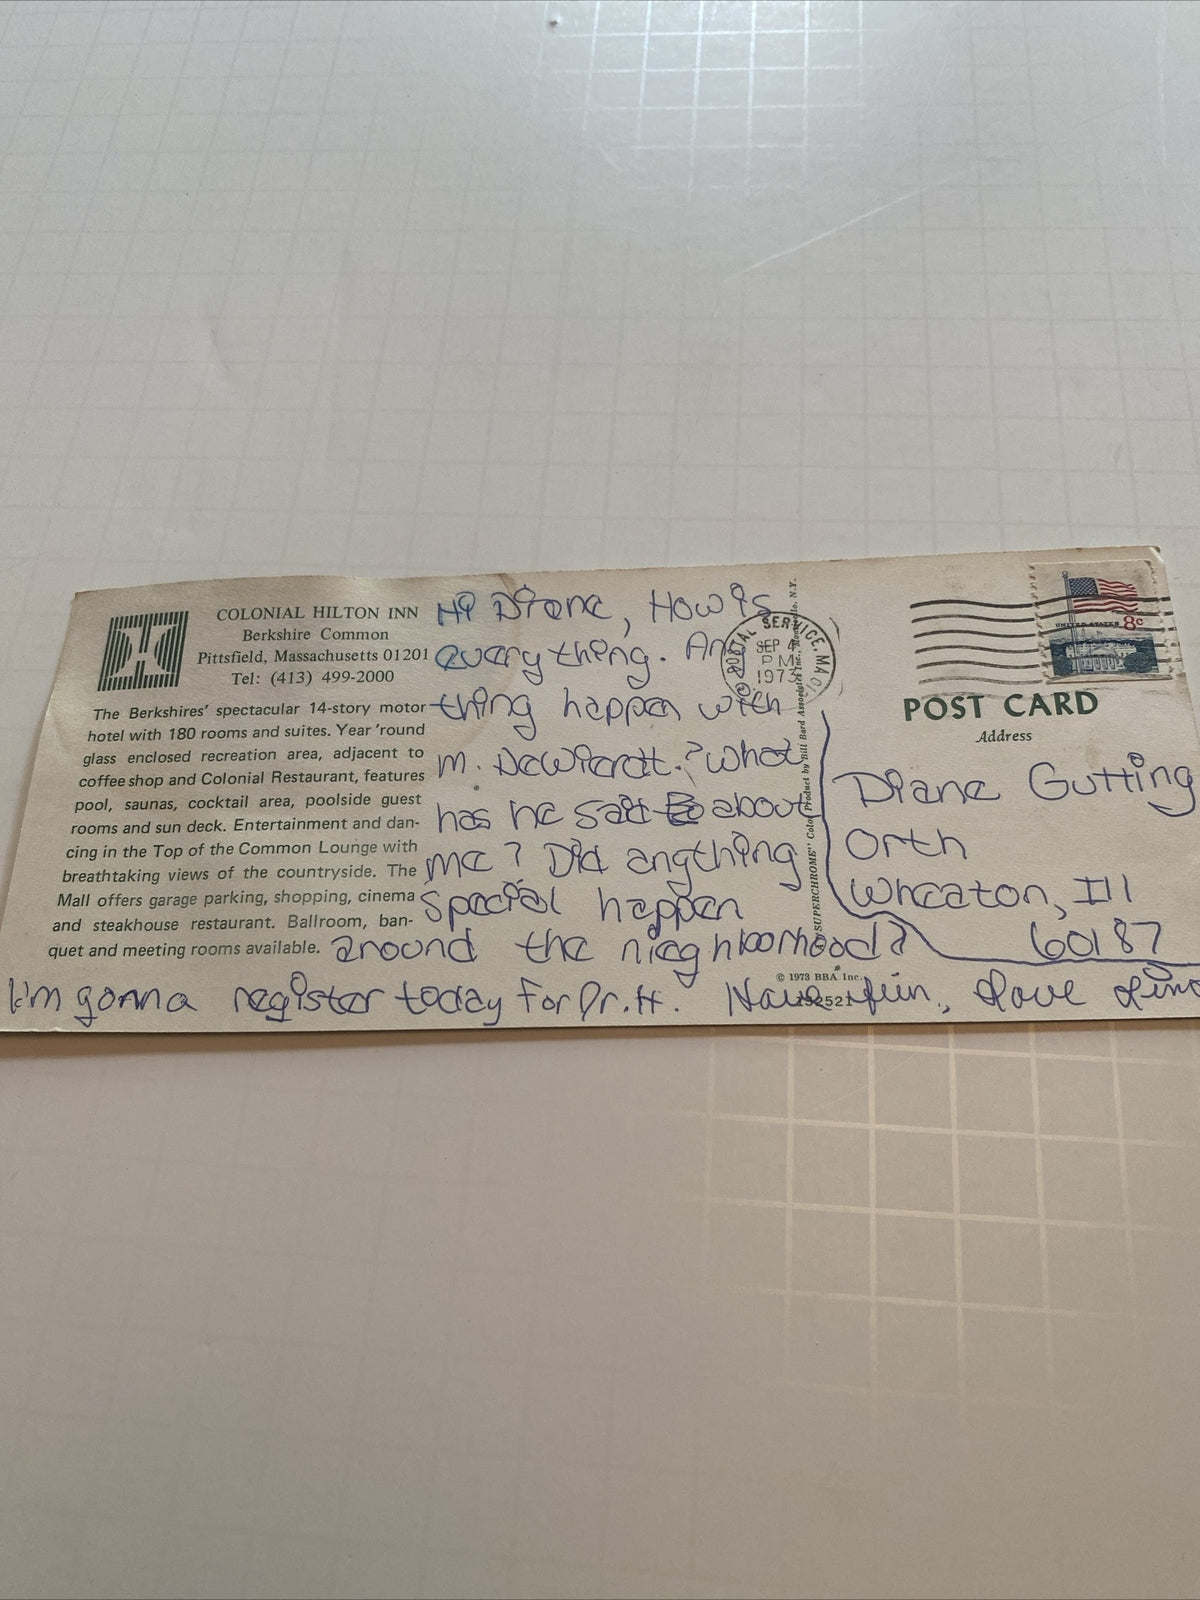 COLONIAL HILTON INN
Berkshire Common
Pittsfield, Massachusetts 01201
Tel: (413) 499-2000
The Berkshires' spectacular 14-story motor
hotel with 180 rooms and suites. Year 'round
glass enclosed recreation area, adjacent to
coffee shop and Colonial Restaurant, features
pool, saunas, cocktail area, poolside guest
rooms and sun deck. Entertainment and dan-
cing in the Top of the Common Lounge with
breathtaking views of the countryside. The
Mall offers garage parking, shopping, cinema
and steakhouse restaurant. Ballroom, ban-
quet and meeting rooms available.
Hi Diane, How is
everything. Any
thing happen with
M. ? What
has he said about
me? Did anything
special happen
around the nieghborhood?
I'm gonna register today For Dr. H. Have fun, Love
POSTAL SERVICE, MA
SEP
PM
1973
"SUPERCHROME" Color Product by Bill Bard Associates Inc., Monticello, N.Y.
© 1973 BBA Inc.
UNITED STATES 8c
POST CARD
Address
Diane Gutting
Orth
Wheaton, Ill
60187